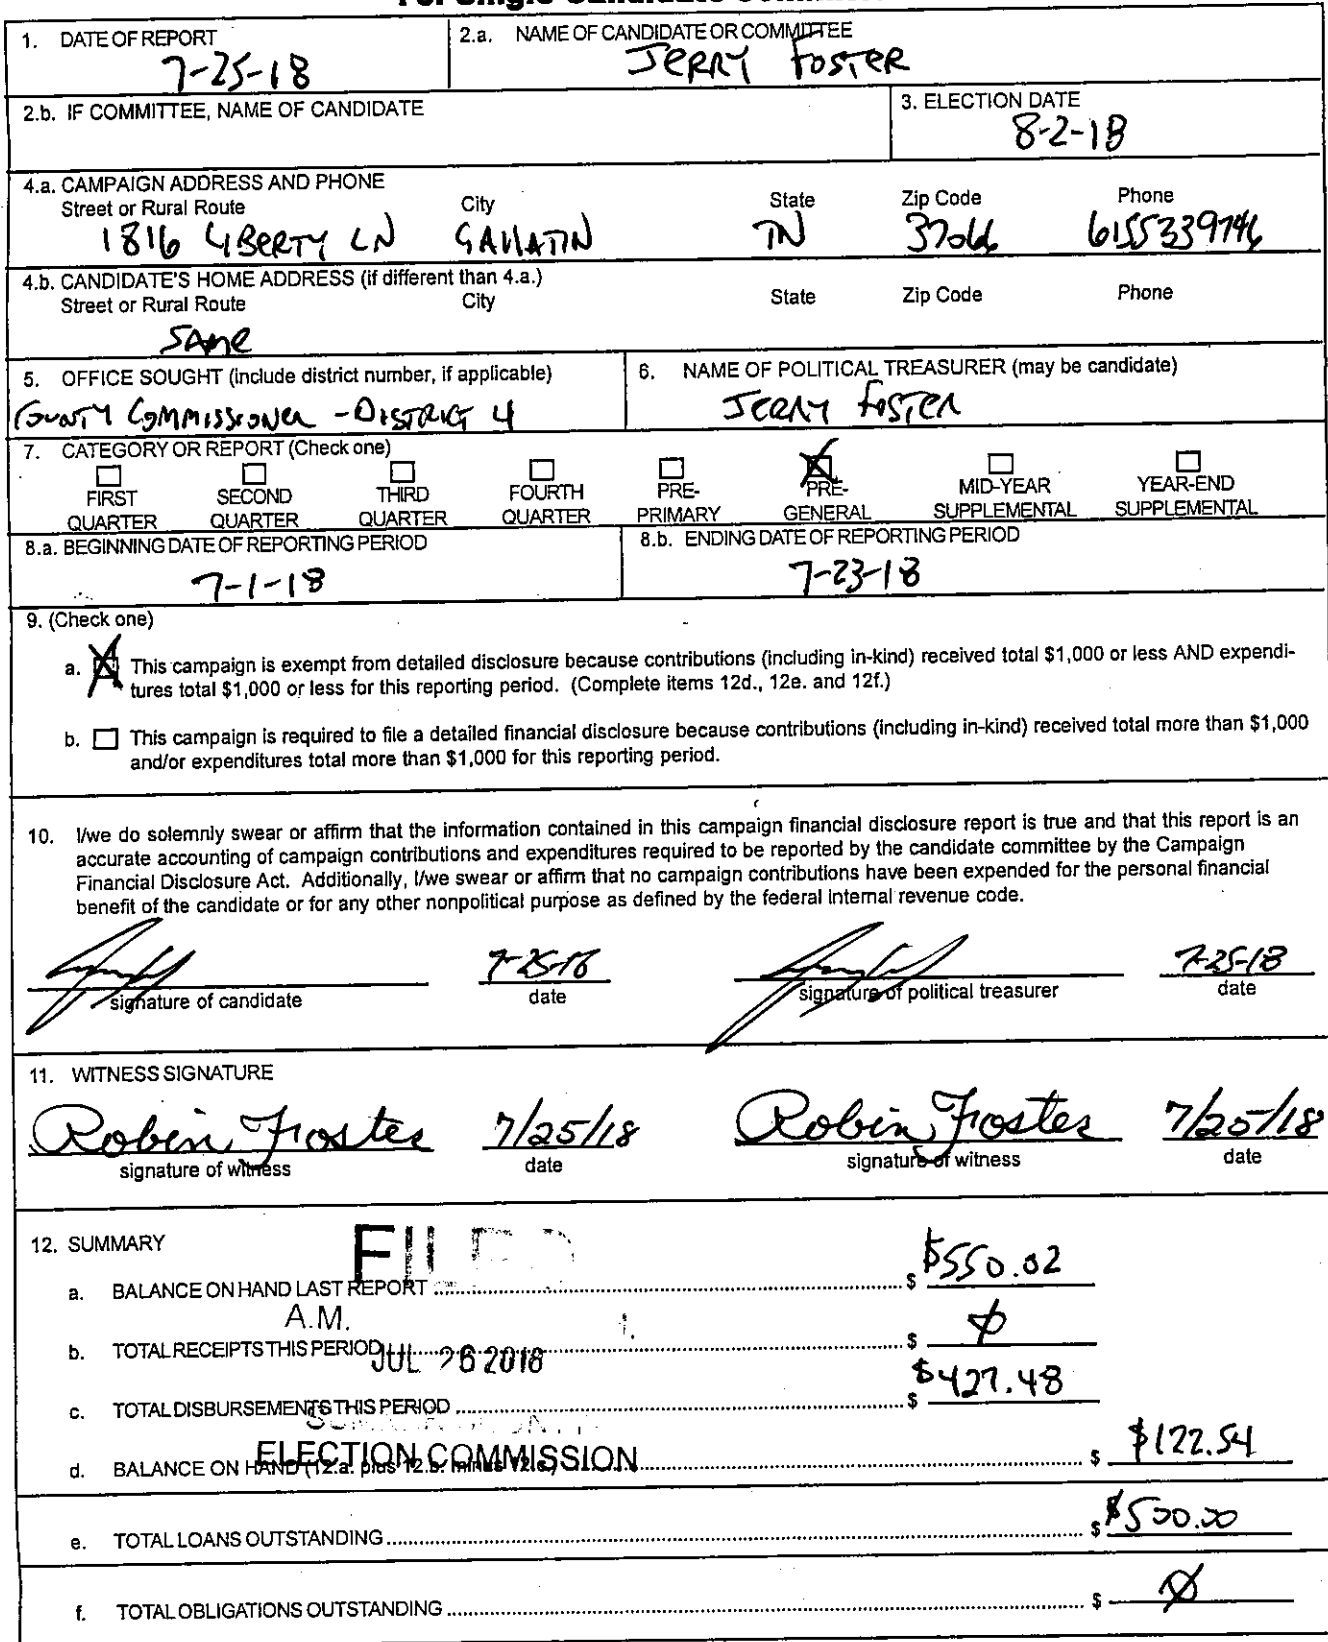 1. DATE OF REPORT
7-25-18
2.a. NAME OF CANDIDATE OR COMMITTEE
JERRY FOSTER
2.b. IF COMMITTEE, NAME OF CANDIDATE
3. ELECTION DATE
8-2-18
4.a. CAMPAIGN ADDRESS AND PHONE
Street or Rural Route City State Zip Code Phone
1816 LIBERTY LN GALLATIN TN 37066 6155339746
4.b. CANDIDATE'S HOME ADDRESS (if different than 4.a.)
Street or Rural Route City State Zip Code Phone
SAme
5. OFFICE SOUGHT (include district number, if applicable)
COUNTY COMMISSIONER - DISTRICT 4
6. NAME OF POLITICAL TREASURER (may be candidate)
JERRY FOSTER
7. CATEGORY OR REPORT (Check one)
FIRST SECOND THIRD FOURTH PRE- PRE- MID-YEAR YEAR-END
QUARTER QUARTER QUARTER QUARTER PRIMARY GENERAL SUPPLEMENTAL SUPPLEMENTAL
8.a. BEGINNING DATE OF REPORTING PERIOD
7-1-18
8.b. ENDING DATE OF REPORTING PERIOD
7-23-18
9. (Check one)
a. This campaign is exempt from detailed disclosure because contributions (including in-kind) received total $1,000 or less AND expendi-
tures total $1,000 or less for this reporting period. (Complete items 12d., 12e. and 12f.)
b. This campaign is required to file a detailed financial disclosure because contributions (including in-kind) received total more than $1,000
and/or expenditures total more than $1,000 for this reporting period.
10. I/we do solemnly swear or affirm that the information contained in this campaign financial disclosure report is true and that this report is an
accurate accounting of campaign contributions and expenditures required to be reported by the candidate committee by the Campaign
Financial Disclosure Act. Additionally, I/we swear or affirm that no campaign contributions have been expended for the personal financial
benefit of the candidate or for any other nonpolitical purpose as defined by the federal internal revenue code.
7-25-18 7-25-18
signature of candidate date signature of political treasurer date
11. WITNESS SIGNATURE
Robin Foster 7/25/18 Robin Foster 7/25/18
signature of witness date signature of witness date
12. SUMMARY
FILED
a. BALANCE ON HAND LAST REPORT $ $550.02
A.M.
b. TOTAL RECEIPTS THIS PERIOD $ ∅
JUL 26 2018
c. TOTAL DISBURSEMENTS THIS PERIOD $ $427.48
ELECTION COMMISSION
d. BALANCE ON HAND (12.a. plus 12.b. minus 12.c.) $ $122.54
e. TOTAL LOANS OUTSTANDING $ $500.00
f. TOTAL OBLIGATIONS OUTSTANDING $ ∅